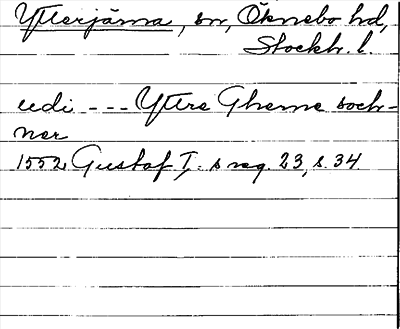 Ytterjärna, sn, Öknebo hd,
Stockh. l.
udi --- Yttre Gherne soch-
ner
1552 Gustaf I:s reg. 23, s. 34